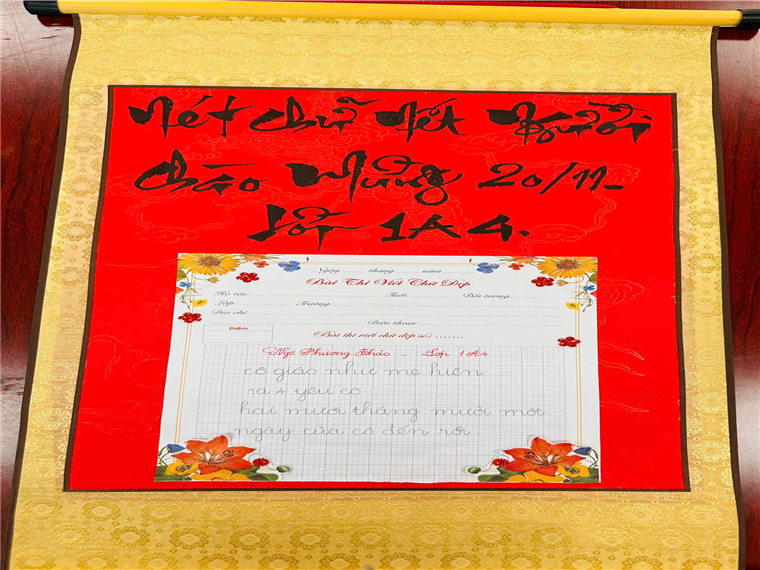 Nét chữ Nết Người
Chào Mừng 20/11_
Lớp 1A4.
Ngày tháng năm
Bài Thi Viết Chữ Đẹp
Họ tên: Tuổi: Đối tượng:
Lớp: Trường:
Địa chỉ:
Điện thoại:
Điểm
Bài thi viết chữ đẹp số: .......
Ngô Phương Thảo - Lớp 1A4
cô giáo như mẹ hiền
1a4 yêu cô
hai mươi tháng mười một
ngày của cô đến rồi